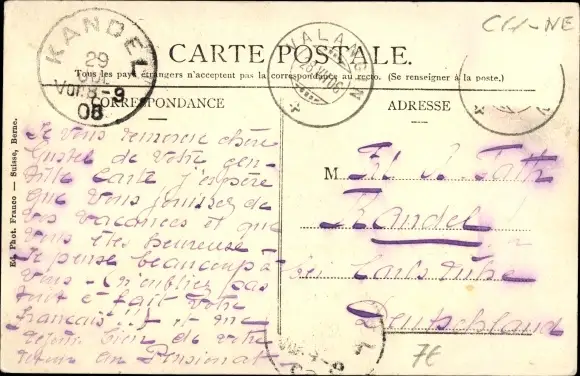 CH-NE
KANDEL
29
JUL
Vor. 8-9
08
VALANGIN
CARTE POSTALE.
Tous les pays étrangers n'acceptent pas la correspondance au recto. (Se renseigner à la poste.)
CORRESPONDANCE
ADRESSE
Ed. Phot. Franco — Suisse, Berne.
Je vous remercie chère
de votre gen-
tille carte j'espère
que vous jouissez de
vos vacances et que
vous êtes heureuse
Je pense beaucoup à
vous n'oubliez pas
tout à fait votre
français !! et me
réjouis bien de votre
retour au Pensionat
M
Kandel
bei Carlsruhe
Deutschland
7€